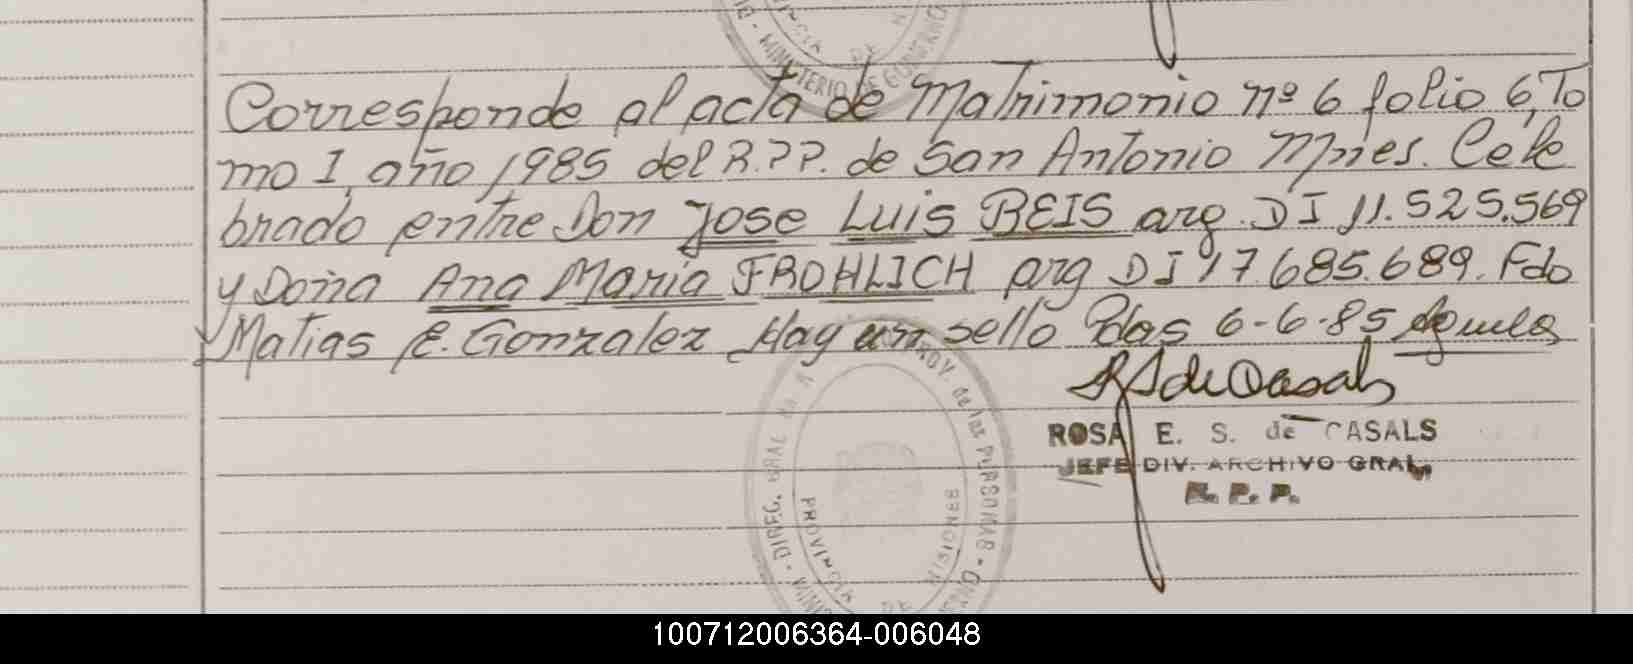 Corresponde al acta de Matrimonio nº 6 folio 6, To
mo I, año 1985 del R.PP. de San Antonio Mnes. Cele
brado entre Don Jose Luis BEIS arg. DI 11.525.569
y Doña Ana Maria FROHLICH arg DI 17.685.689. Fdo
Matias E. Gonzalez Hay un sello Pdas 6-6-85
ROSA E. S. de CASALS
JEFE DIV. ARCHIVO GRAL.
R. P. P.
DIREC. GRAL PROV. de las PERSONAS
PROVINCIA DE MISIONES
100712006364-006048